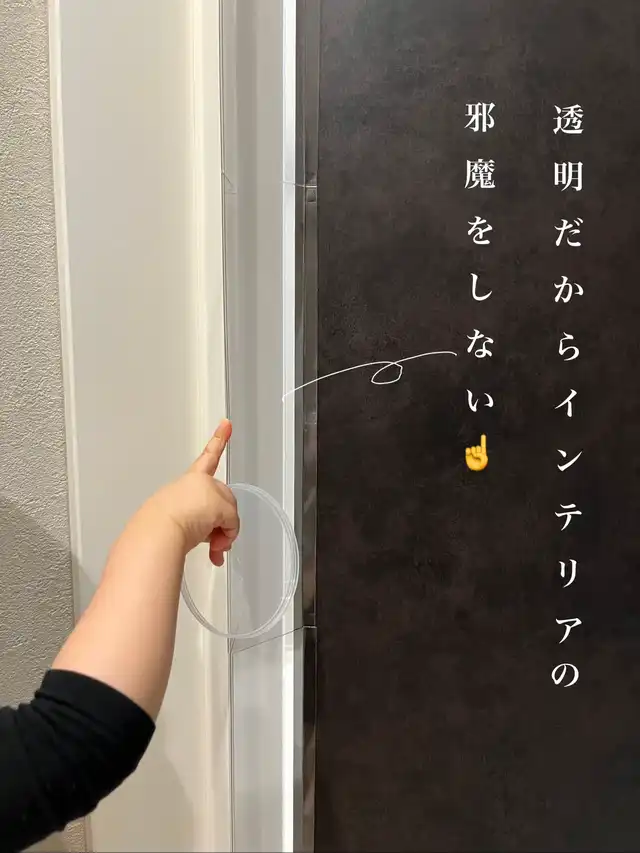 透明だからインテリアの
邪魔をしない☝️